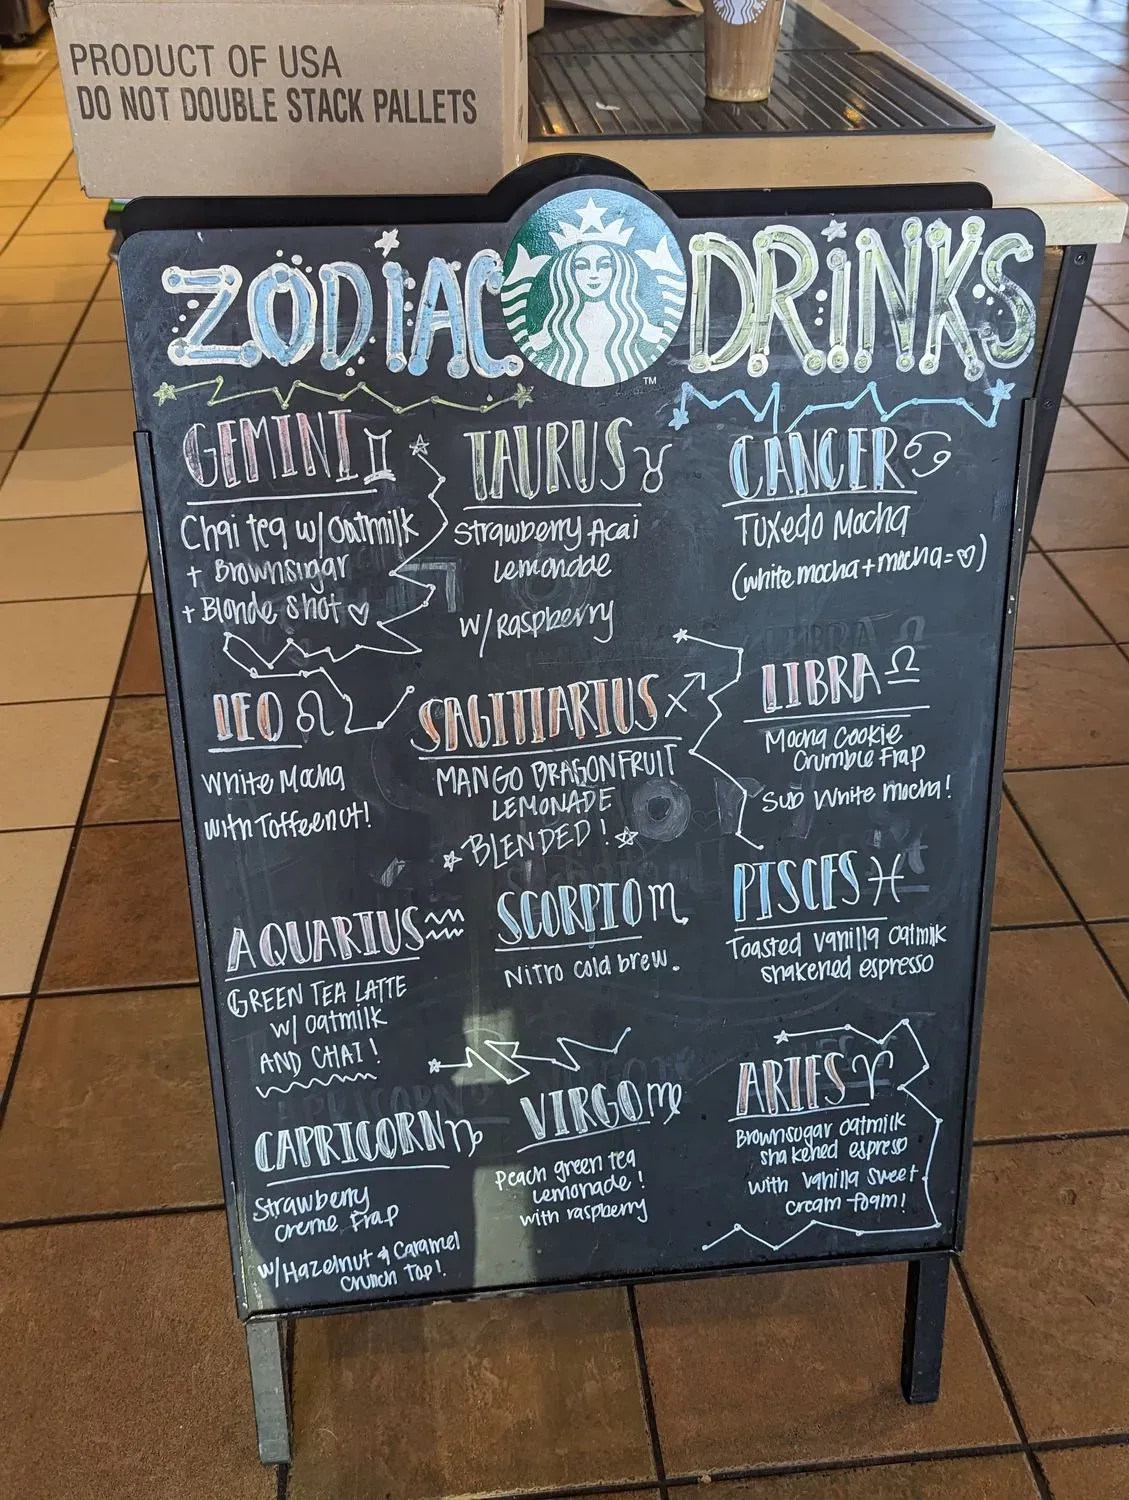 PRODUCT OF USA
DO NOT DOUBLE STACK PALLETS
ZODIAC DRINKS
TM
GEMINI
Chai tea w/ Oatmilk
+ Brownsugar
+ Blonde shot
TAURUS
Strawberry Acai
Lemonade
w/ Raspberry
CANCER
Tuxedo Mocha
(white mocha + mocha = ♡)
LEO
White Mocha
with Toffeenut!
SAGITTARIUS
MANGO DRAGONFRUIT
LEMONADE
BLENDED!
LIBRA
Mocha Cookie
Crumble Frap
Sub White mocha!
AQUARIUS
GREEN TEA LATTE
w/ Oatmilk
AND CHAI!
SCORPIO
Nitro cold brew.
PISCES
Toasted Vanilla Oatmilk
shakened espresso
CAPRICORN
Strawberry
Creme Frap
w/ Hazelnut & Caramel
Crunch Top!
VIRGO
Peach green tea
Lemonade!
with raspberry
ARIES
Brownsugar Oatmilk
shakened espreso
with Vanilla Sweet
cream foam!